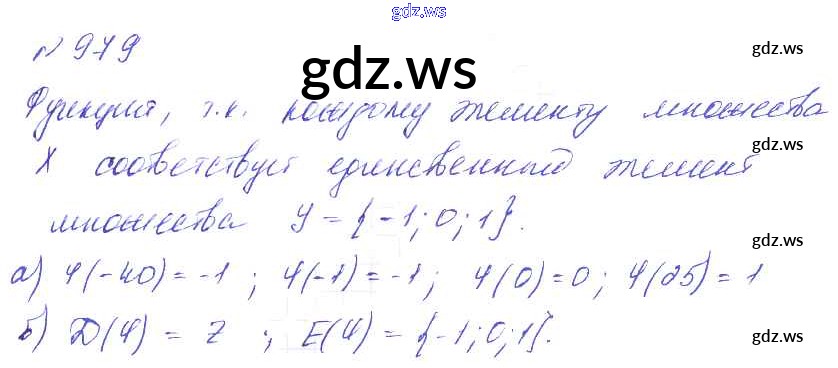 gdz.ws
№ 979
gdz.ws
gdz.ws
Функция, т.к. каждому элементу множества
gdz.ws
X соответствует единсвенный элемент
множества Y = {-1; 0; 1}.
gdz.ws
а) φ(-40) = -1 ; φ(-1) = -1; φ(0) = 0; φ(25) = 1
б) D(φ) = Z ; E(φ) = {-1; 0; 1}.
gdz.ws